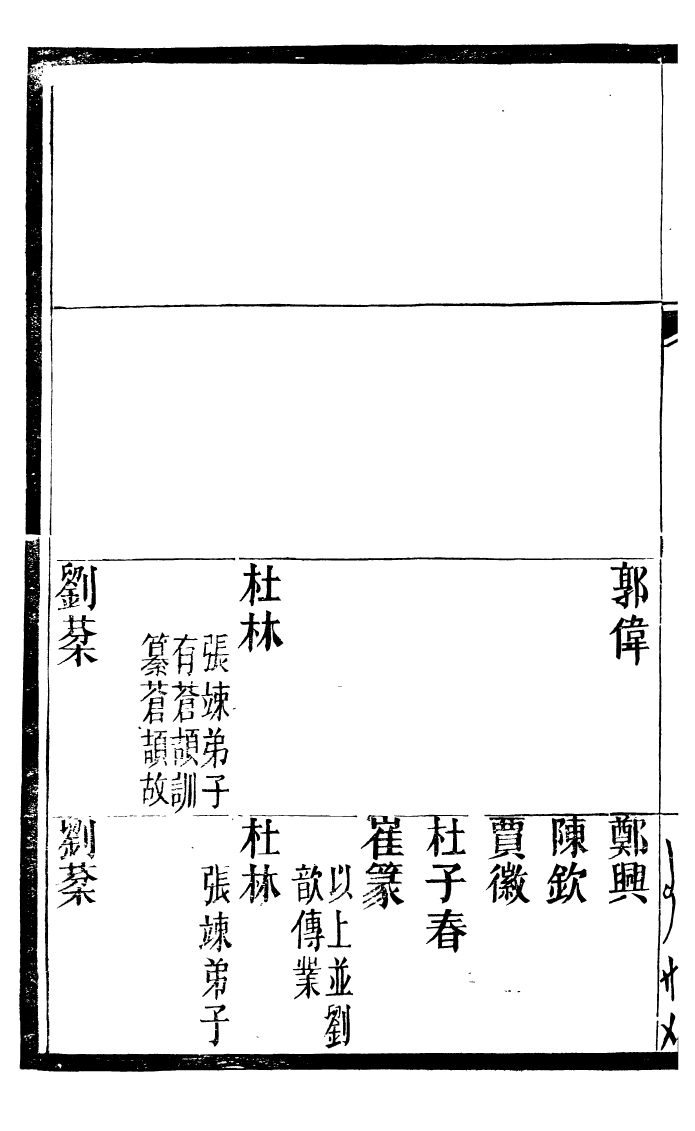 郭偉
杜林
張竦弟子
有蒼頡訓
纂蒼頡故
劉棻
鄭興
陳欽
賈徽
杜子春
崔篆
以上並劉
歆傳業
杜林
張竦弟子
劉棻